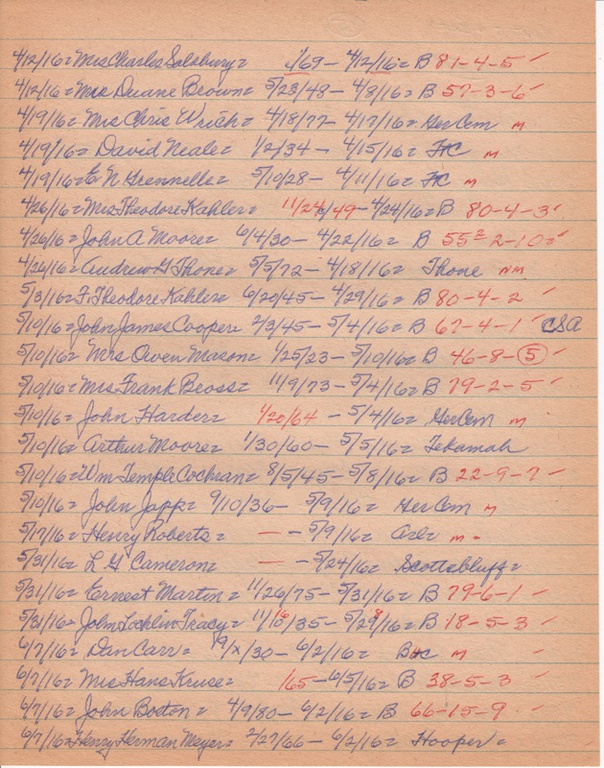 4/12/16 = Mrs Charles Salsbury = 1/69 - 4/12/16 = B 81-4-5 ✓
4/12/16 = Mrs Duane Brown = 5/23/48 - 4/8/16 = B 57-3-6 ✓
4/19/16 = Mrs Chris Wrich = 4/18/77 - 4/17/16 = Ger Cem M
4/19/16 = David Neale = 1/2/34 - 4/15/16 = M
4/19/16 = E N Grennelle = 5/10/28 - 4/11/16 = M
4/26/16 = Mrs Theodore Kahler = 11/24/49 - 4/24/16 = B 80-4-3 ✓
4/26/16 = John A Moore = 6/4/30 - 4/22/16 = B 2-10 ✓
4/26/16 = Andrew G Thone = 5/5/72 - 4/18/16 = Thone NM
5/3/16 = F. Theodore Kahler = 6/20/45 - 4/29/16 = B 80-4-2 ✓
5/10/16 = John James Cooper = 2/3/45 - 5/4/16 = B 67-4-1 ✓ CSA
5/10/16 = Mrs Owen Mason = 1/25/23 - 5/10/16 = B 46-8-5 ✓
5/10/16 = Mrs Frank Beoss = 11/9/73 - 5/4/16 = B 79-2-5 ✓
5/10/16 = John Harder = 1/20/64 - 5/4/16 = Ger Cem M
5/10/16 = Arthur Moore = 1/30/60 - 5/5/16 = Tekamah
5/10/16 = Wm Temple Cochran = 8/5/45 - 5/8/16 = B 22-9-7 ✓
5/10/16 = John Japp = 9/10/36 - 5/9/16 = Ger Cem M
5/17/16 = Henry Roberts = — - 5/9/16 = M
5/31/16 = L G Cameron = — - 5/24/16 = Scottsbluff =
5/31/16 = Ernest Martin = 11/26/75 - 5/31/16 = B 79-6-1 ✓
5/31/16 = John Lochlin Tracy = 11/16/35 - 5/28/16 = B 18-5-3 ✓
6/7/16 = Dan Carr = 9/x/30 - 6/2/16 = M
6/7/16 = Mrs Hans Kruse = /65 - 6/5/16 = B 38-5-3 ✓
6/7/16 = John Boston = 4/9/80 - 6/2/16 = B 66-15-9 ✓
6/7/16 = Henry Herman Meyer = 2/27/66 - 6/2/16 = Hooper =